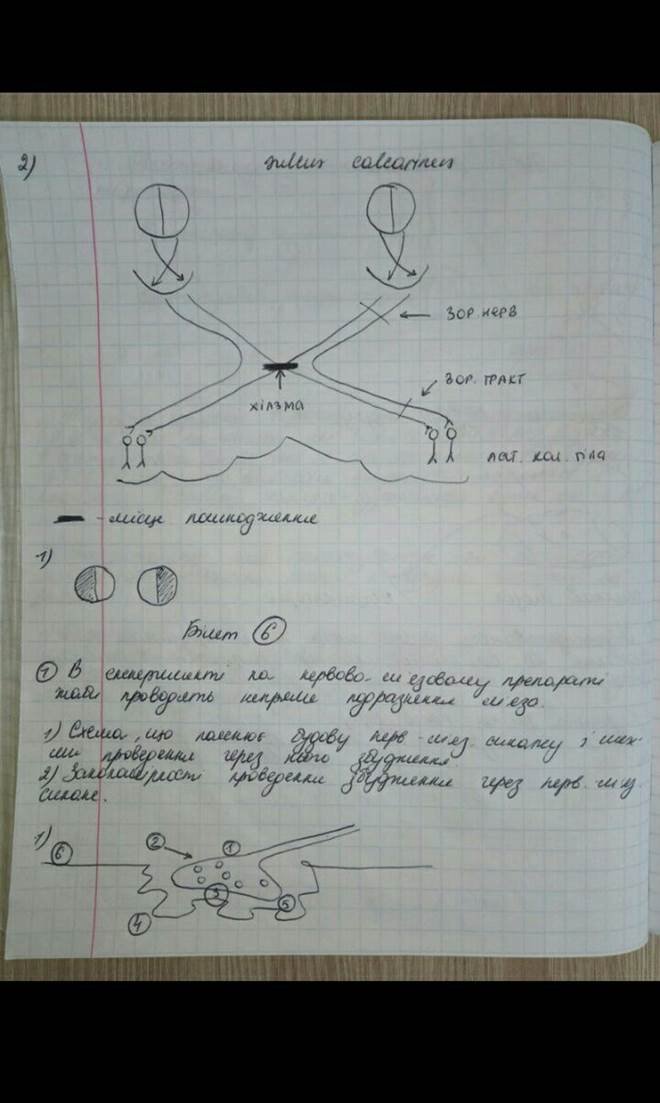 2)
sulcus calcarinus
зор. нерв
зор. тракт
хіазма
лат. кол. тіла
- місце пошкодження
1)
Білет 6
① В експерименті на нервово-м'язовому препараті
жаби проводять непряме подразнення м'яза.
1) Схема, що пояснює будову нерв-м'яз. синапсу і мех-
зми проведення через нього збудження
2) Закономірності проведення збудження через нерв. м'яз.
синапс.
1)
6 2 1
3 5
4